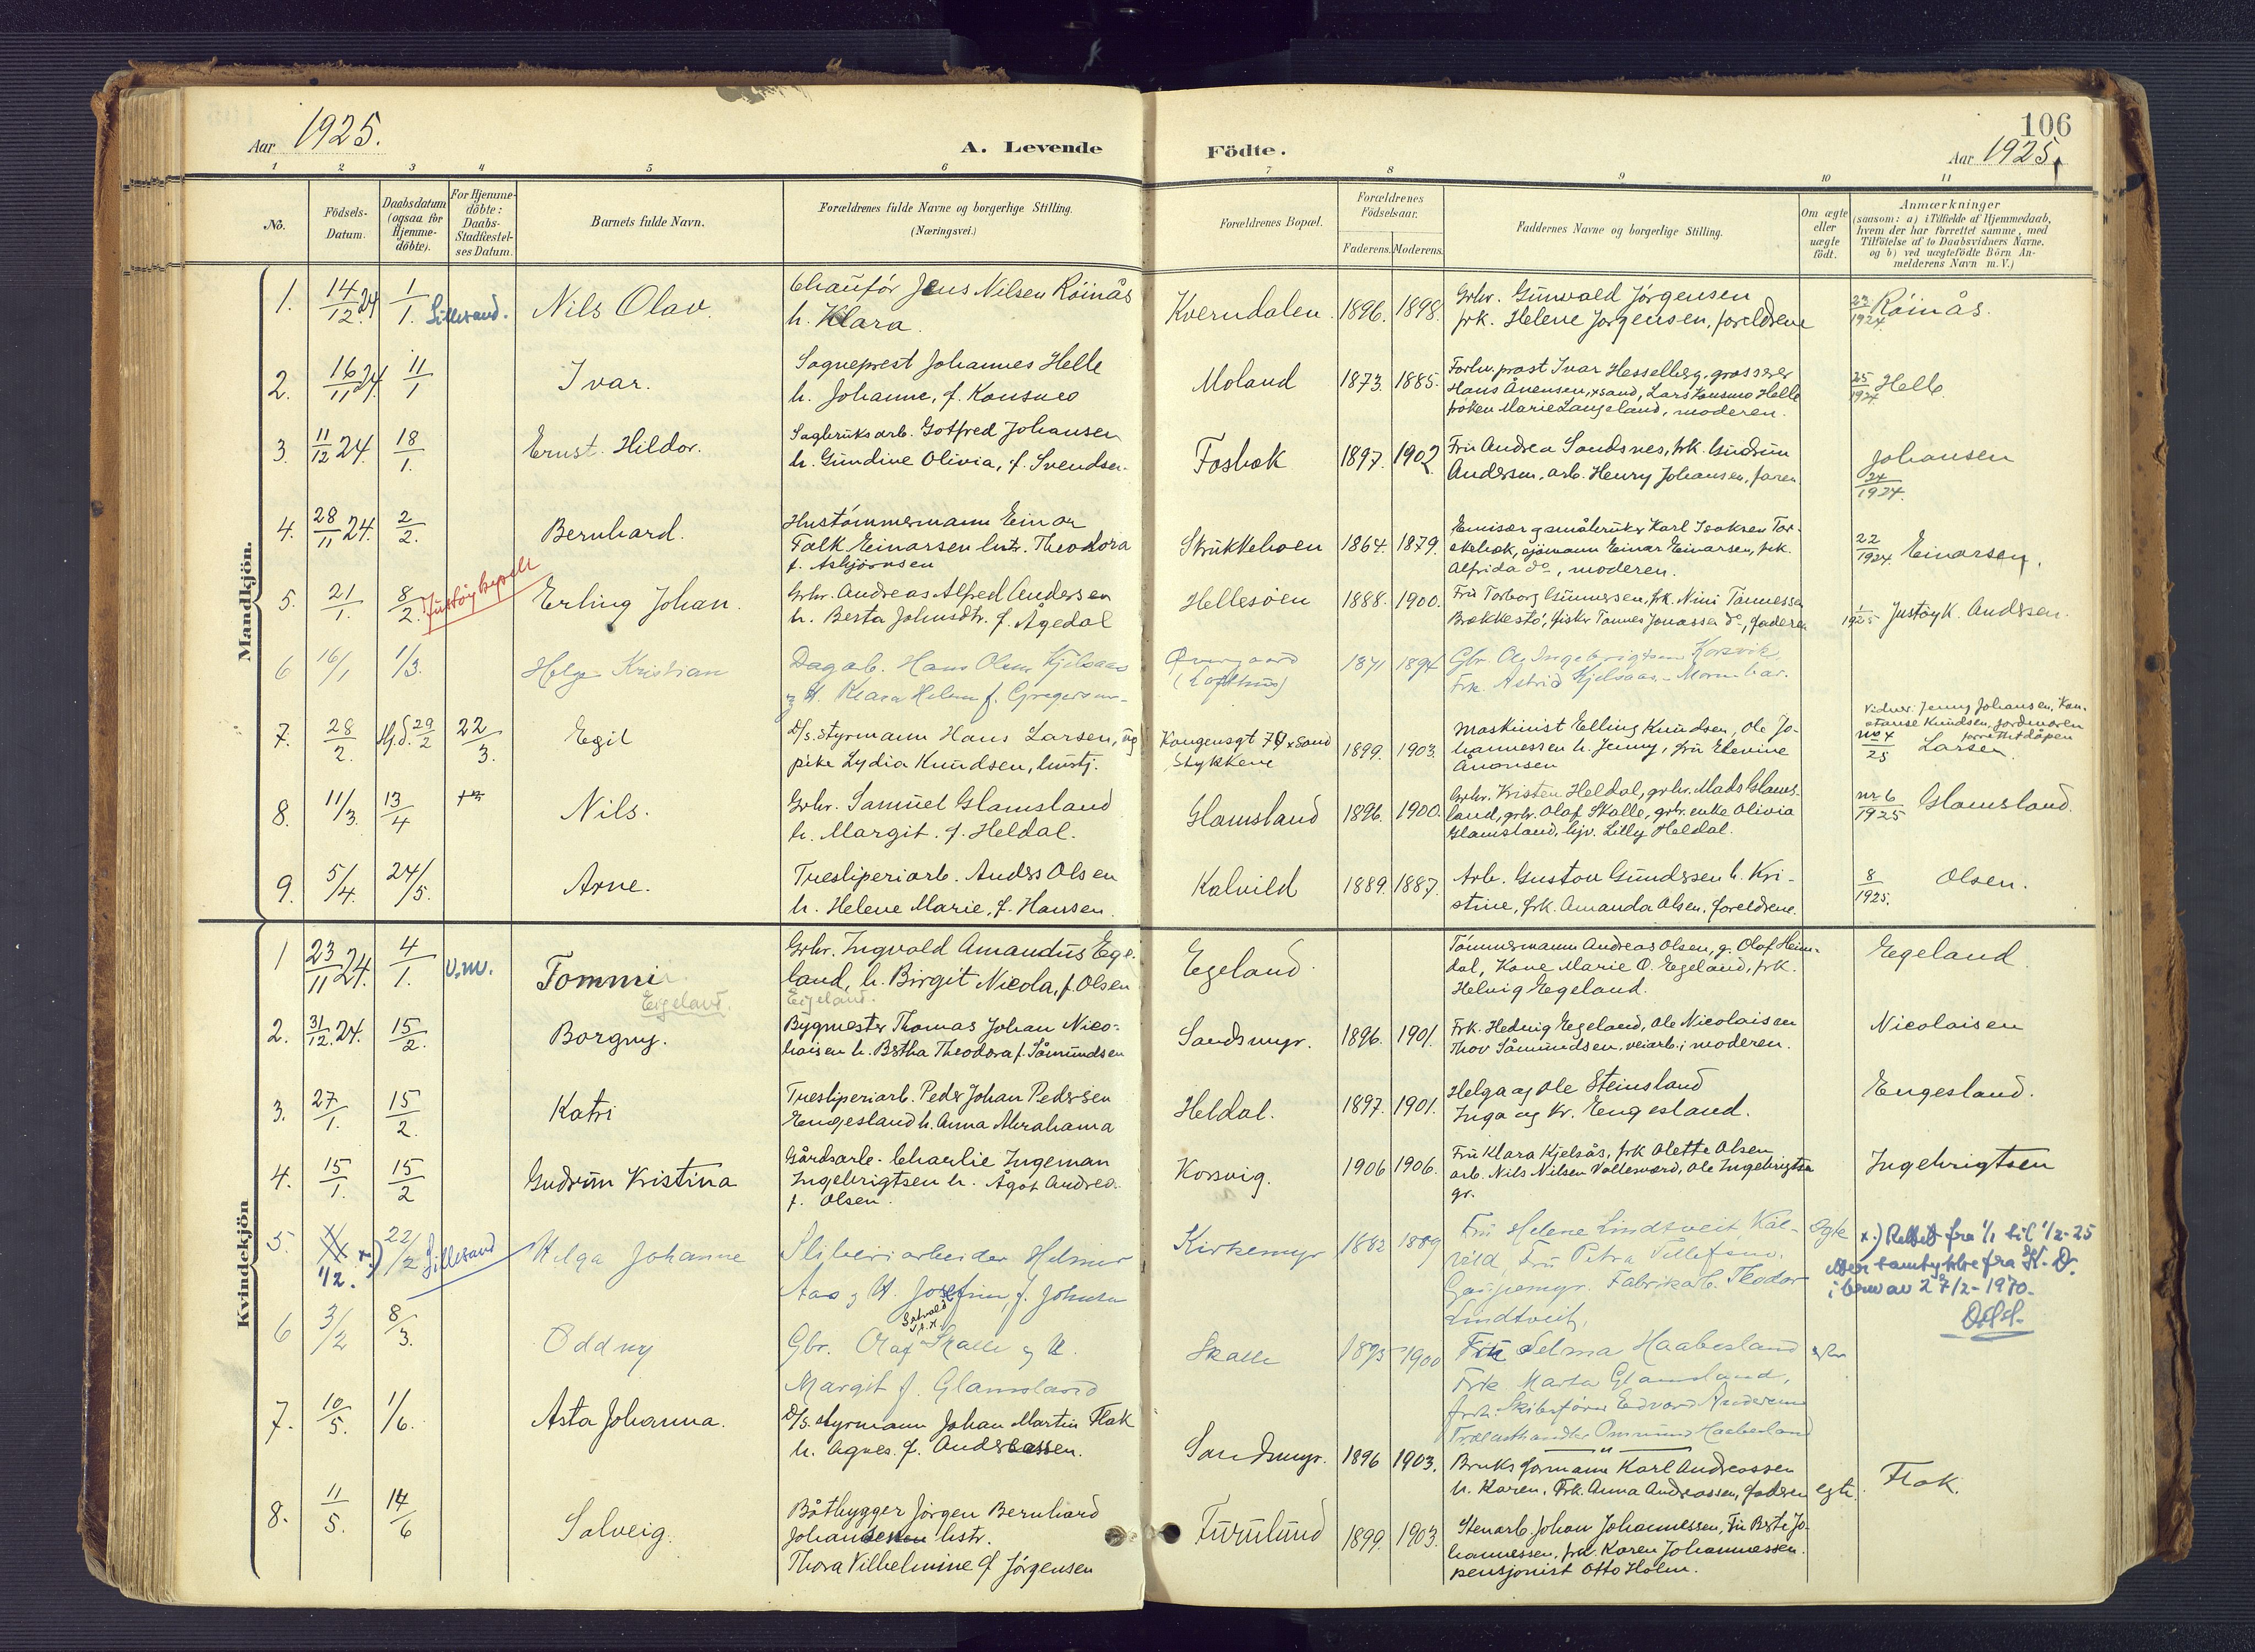 Aar 1925.
A. Levende Födte.
106
Aar 1925.
1 2 3 4 5 6 7 8 9 10 11
No.
Födsels-
Datum.
Daabsdatum
(ogsaa for
Hjemme-
döbte).
For Hjemme-
döbte:
Daabs-
Stadfæstel-
ses Datum.
Barnets fulde Navn.
Forældrenes fulde Navne og borgerlige Stilling.
(Næringsvei.)
Forældrenes Bopæl.
Forældrenes
Födselsaar.
Faderens. Moderens.
Faddernes Navne og borgerlige Stilling.
Om ægte
eller
uægte
födt.
Anmærkninger
(saasom: a) i Tilfælde af Hjemmedaab,
hvem der har forrettet samme, med
Tilföielse af to Daabsvidners Navne.
og b) ved uægtefödte Börn An-
melderens Navn m. V.)
Mandkjön.
1. 14/12 24 1/1. Lillesand. Nils Olav.
Chauför Jens Nilsen Röinås
h. Klara.
Kverndalen. 1896. 1898.
Grbr. Gunvald Jörgensen
frk. Helene Jörgensen, foreldrene
23/1924 Röinås.
2. 16/11 24. 11/1 Ivar.
Sogneprest Johannes Helle
h. Johanne, f. Konsmo
Moland 1873. 1885.
Forhv. prost Ivar Hesselberg, grosserer
Hans Ånensen, xsand, Lars Konsmo Helle
fröken Marie Langeland, moderen.
25/1924. Helle.
3. 11/12 24. 18/1. Ernst. Hildor.
Sagbruksarb. Gotfred Johansen
h. Gundine Olivia, f. Svendsen.
Fosbæk 1897. 1902
Fru Andrea Sandsnes, frk. Gudrun
Andersen, arb. Henry Johansen, faren
Johansen
24/1924.
4. 28/11 24. 2/2. Bernhard.
Hustömmermann Einar
Falk Einarsen hustr. Theodora
f. Asbjörnsen
Strukkehoen 1864. 1879.
Emisær g småbruker Karl Isaksen Tor-
skebæk, sjömann Einar Einarsen, frk.
Alfrida do, moderen.
22/1924. Einarsen.
5. 21/1. 8/2. Justöy kapell Erling Johan.
Grbr. Andreas Alfred Andersen
h. Berta Johnsdtr. f. Ågedal
Hellesöen 1888. 1900.
Fru Torborg Gunnersen, frk. Nini Tönnessen
Brækkestö, fisker Tönnes Jonassen do, faderen
1/1925 Justöy k. Andersen.
6 16/1 1/3. Helge Kristian
Dagarb. Hans Olsen Kjelsaas
g H. Klara Helene f. Gregersen-
Övergaard
(Lofthus)
1871 1894
Gbr. Ole Ingebrigtsen Korsvik.
Frk. Astrid Kjelsaas-Moren bar.
7. 28/2. Hj.d. 29/2 22/3. Egil
D/s. styrmann Hans Larsen, ug
pike Lydia Knudsen, hustj.
Kongensgt 74 xsand
Stykkene
1899. 1903.
Maskinist Elling Knudsen, Ole Jo-
hannessen h. Jenny, fru Elevine
Ånonsen
Vidner: Jenny Johansen, Kon-
stanse Knudsen, jordmoren
forrettet dåpen
no 4/25 Larsen
8. 11/3. 13/4 Nils.
Grbr. Samuel Glamsland
h. Margit. f. Heldal.
Glamsland 1896. 1900.
Grbr. Kristen Heldal, grbr. Mads Glams-
land, grbr. Olaf Skalle, grbr. enke Olivia
Glamsland, hjv. Lilly Heldal.
nr 6/1925 Glamsland.
9. 5/4. 24/5. Arne.
Tresliperiarb. Anders Olsen
h. Helene Marie, f. Hansen.
Kalvild 1889. 1887.
Arb. Gustav Gundersen h. Kri-
stine, frk. Amanda Olsen, foreldrene.
8/1925. Olsen.
Kvindekjön
1 23/11 24. 4/1. V.M. Tommi
Eigeland.
Grbr. Ingvald Amandus Ege-
land, h. Birgit Nicola, f. Olsen
Eigeland.
Egeland.
Tömmermann Andreas Olsen, g. Olaf Heim-
dal, Kone Marie O. Egeland, frk.
Helvig Egeland.
Egeland
2. 31/12. 24. 15/2. Borgny.
Bygmester Thomas Johan Nico-
laisen h. Bertha Theodora f. Såmundsen
Sandsmyr. 1896. 1901.
Frk. Hedvig Egeland, Ole Nicolaisen
Thov Såmundsen, veiarb.; moderen.
Nicolaisen
3. 27/1. 15/2. Katri
Tresliperiarb. Peder Johan Pedersen
Engesland h. Anna Abrahama
Heldal. 1897. 1901.
Helga og Ole Steinsland
Inga og Kr. Engesland.
Engesland.
4. 15/1. 15/2 Gudrun Kristina
Gårdsarb. Charlie Ingeman
Ingebrigtsen h. Ågot Andrea
f. Olsen.
Korsvig. 1906 1906.
Fru Klara Kjelsås, frk Olette Olsen
arb. Nils Nilsen Vallesværd, Ole Ingebrigtsen
gr.
Ingebrigtsen
5. x) 1/2. 22/2 Lillesand Helga Johanne
Sliperiarbeider Helmer
Aas g H. Josefine, f. Johnsen
Kirkemyr 1882 1889
Fru Helene Lindtveit Kal-
veld, Fru Petra Tellefsen.
Gaupemyr. Fabrikarb. Theodor
Lindtveit,
Ægte x.) Rettet fra 1/1 til 1/2-25
etter samtykke fra K.D.
i brev av 27/2-1970.
6 3/2 8/3. Oddny
Gbr. Olaf Skalle g H.
Margit f. Glamsland
Skalle 1895 1900
Fru Selma Haabesland
Frk Marta Glamsland,
Skibsförer Edvard Andersen
Trælasthandler Omund Haabesland
7. 10/5. 1/6. Asta Johanna.
D/s. styrmann Johan Martin Flak
h. Agnes. f. Andreassen.
Sandsmyr. 1896 1903.
Bruksformann Karl Andreassen
h. Karen, Frk. Anna Andreassen, faderen
egte. Flak.
8. 11/5. 14/6 Solveig.
Båtbygger Jörgen Bernhard
Johannessen hustr.
Thora Vilhelmine f Jörgensen
Furulund 1899. 1903.
Stenarb. Johan Johannessen, Fru Berte Jo-
hannessen, frk. Karen Johannessen.
pensjonist Otto Holm.